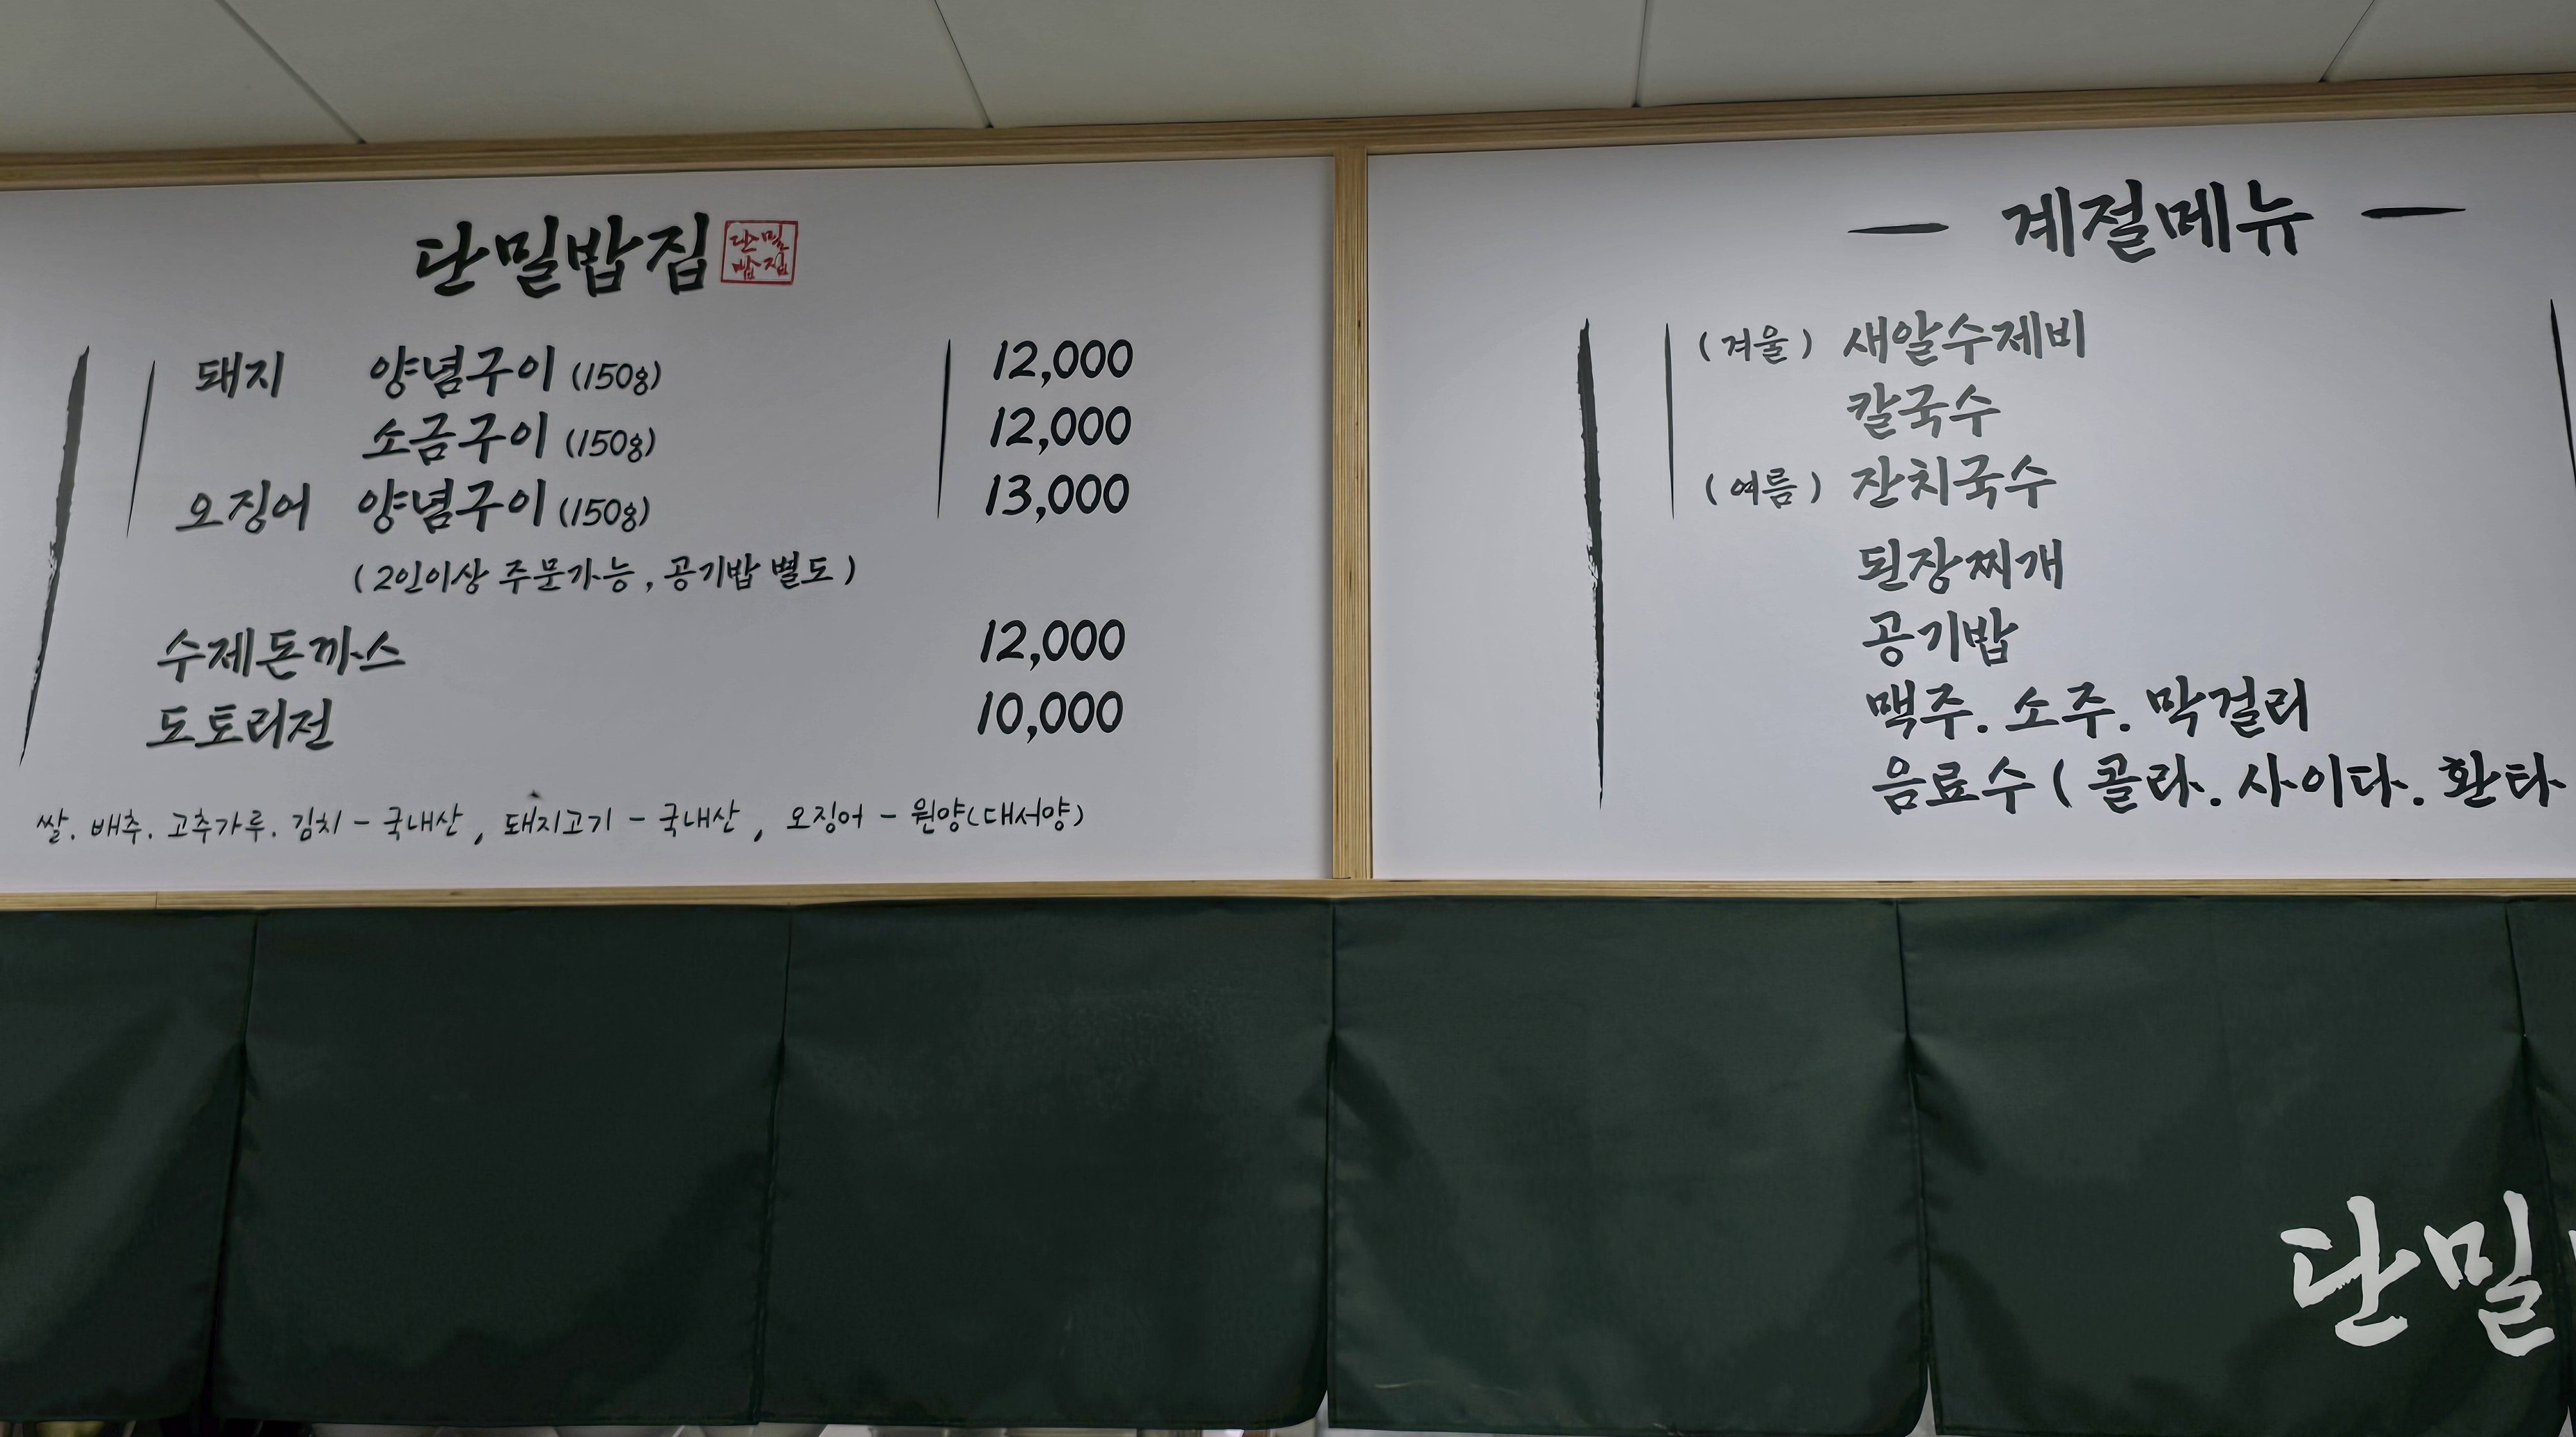 단밀밥집
단밀
밥집
돼지 양념구이 (150g) 12,000
소금구이 (150g) 12,000
오징어 양념구이 (150g) 13,000
(2인이상 주문가능, 공기밥 별도)
수제돈까스 12,000
도토리전 10,000
쌀. 배추. 고추가루. 김치 - 국내산, 돼지고기 - 국내산, 오징어 - 원양(대서양)
- 계절메뉴 -
(겨울) 새알수제비
칼국수
(여름) 잔치국수
된장찌개
공기밥
맥주. 소주. 막걸리
음료수 ( 콜라. 사이다. 환타
단밀